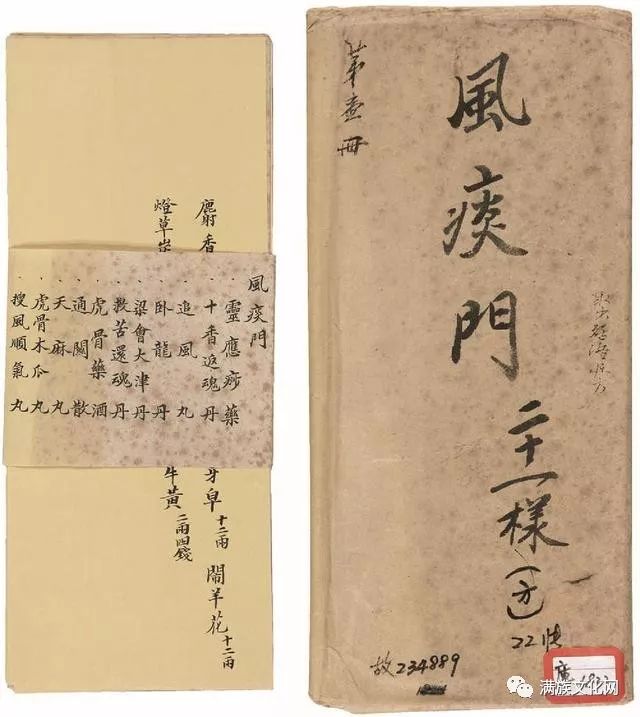 麝香
燈草
牙皁十二兩 鬧羊花十二兩
牛黃二兩四錢
風痰門
靈應痧藥
十香返魂丹
追風丸
臥龍丹
梁會大津丹
救苦還魂丹
虎骨藥酒
通關散
天麻丸
虎骨木瓜丸
搜風順氣丸
第壹冊
風痰門二十一樣(方)
22快
故234889
满族文化网